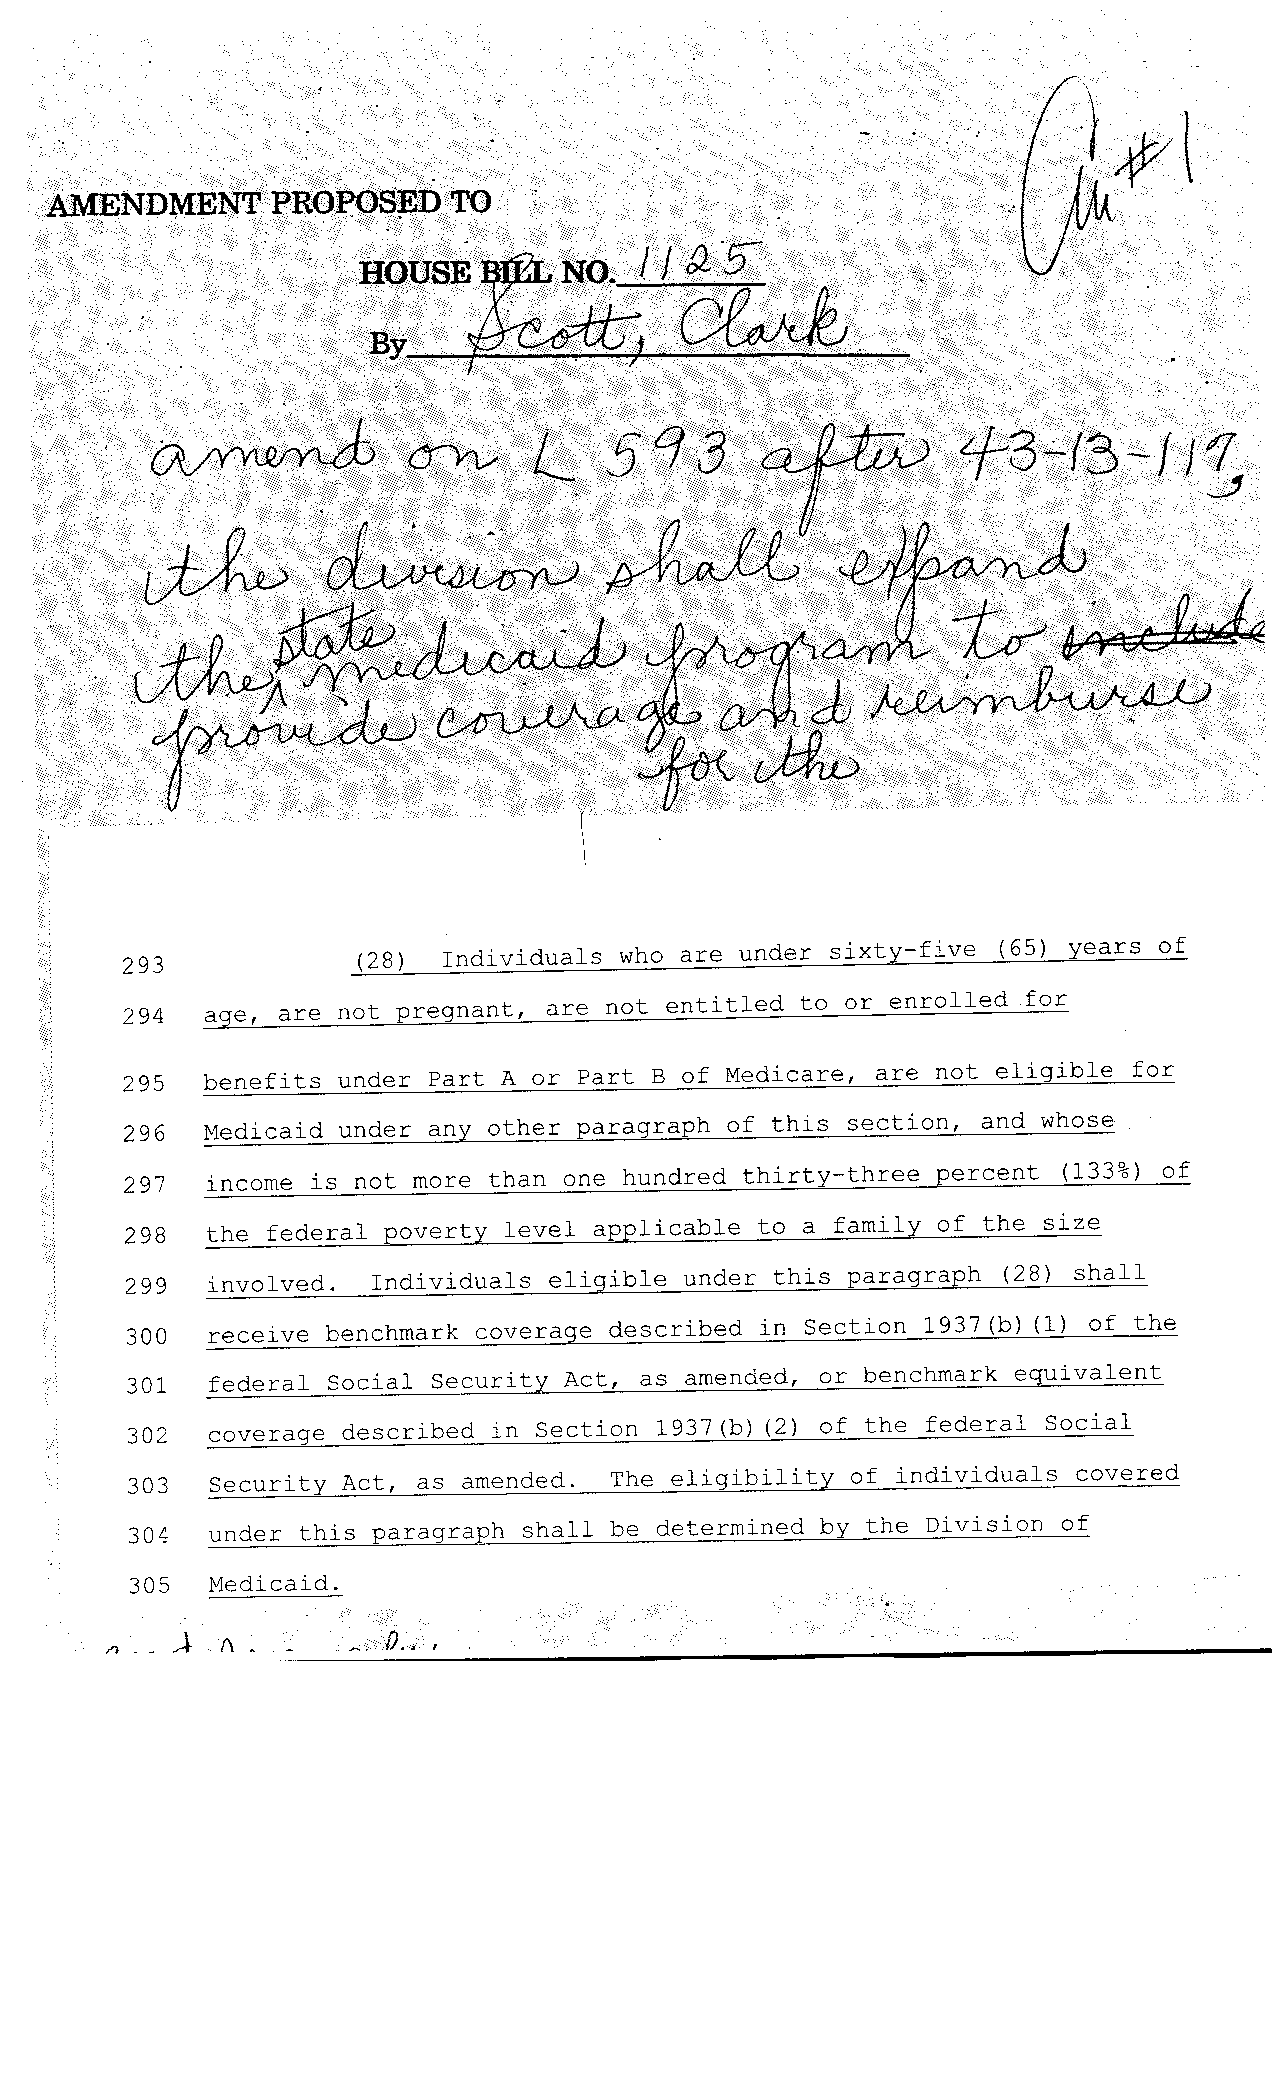 Am #1
AMENDMENT PROPOSED TO
HOUSE BILL NO. 1125
By Scott, Clark
amend on L 593 after 43-13-117,
the division shall expand
the state medicaid program to include
provide coverage and reimburse
for the
293 (28) Individuals who are under sixty-five (65) years of
294 age, are not pregnant, are not entitled to or enrolled for
295 benefits under Part A or Part B of Medicare, are not eligible for
296 Medicaid under any other paragraph of this section, and whose
297 income is not more than one hundred thirty-three percent (133%) of
298 the federal poverty level applicable to a family of the size
299 involved. Individuals eligible under this paragraph (28) shall
300 receive benchmark coverage described in Section 1937(b)(1) of the
301 federal Social Security Act, as amended, or benchmark equivalent
302 coverage described in Section 1937(b)(2) of the federal Social
303 Security Act, as amended. The eligibility of individuals covered
304 under this paragraph shall be determined by the Division of
305 Medicaid.